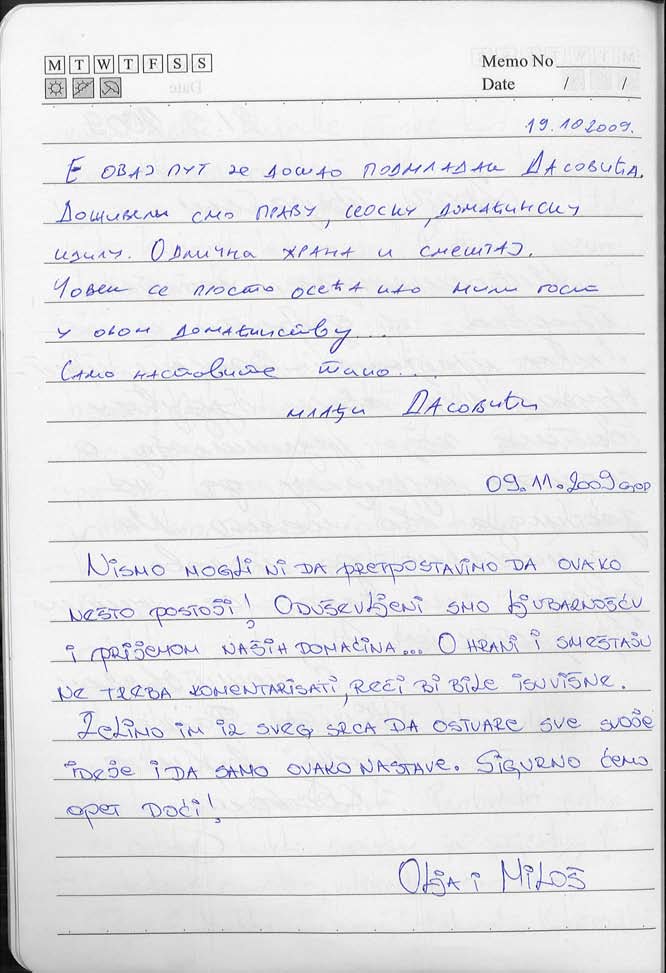 M T W T F S S
Memo No
Date / /
19.10 2009.
Е ОВАЈ ПУТ ЈЕ ДОШАО ПОДМЛАДАК ДАСОВИЋА.
ДОЖИВЕЛИ СМО ПРАВУ, СЕОСКУ, ДОМАЋИНСКУ
ИДИЛУ. ОДЛИЧНА ХРАНА И СМЕШТАЈ.
ЧОВЕК СЕ ПРОСТО ОСЕЋА КАО МИЛИ ГОСТ
У ОВОМ ДОМАЋИНСТВУ...
САМО НАСТАВИТЕ ТАКО...
МЛАЂИ ДАСОВИЋИ
09.11.2009 GOD
NISMO MOGLI NI DA PRETPOSTAVIMO DA OVAKO
NEŠTO POSTOJI! ODUŠEVLJENI SMO LJUBAZNOŠĆU
I PRIJEMOM NAŠIH DOMAĆINA... O HRANI I SMEŠTAJU
NE TREBA KOMENTARISATI, REČI BI BILE ISUVIŠNE.
ŽELIMO IM IZ SVEG SRCA DA OSTVARE SVE SVOJE
IDEJE I DA SAMO OVAKO NASTAVE. SIGURNO ĆEMO
OPET DOĆI!
OLJA I MILOŠ